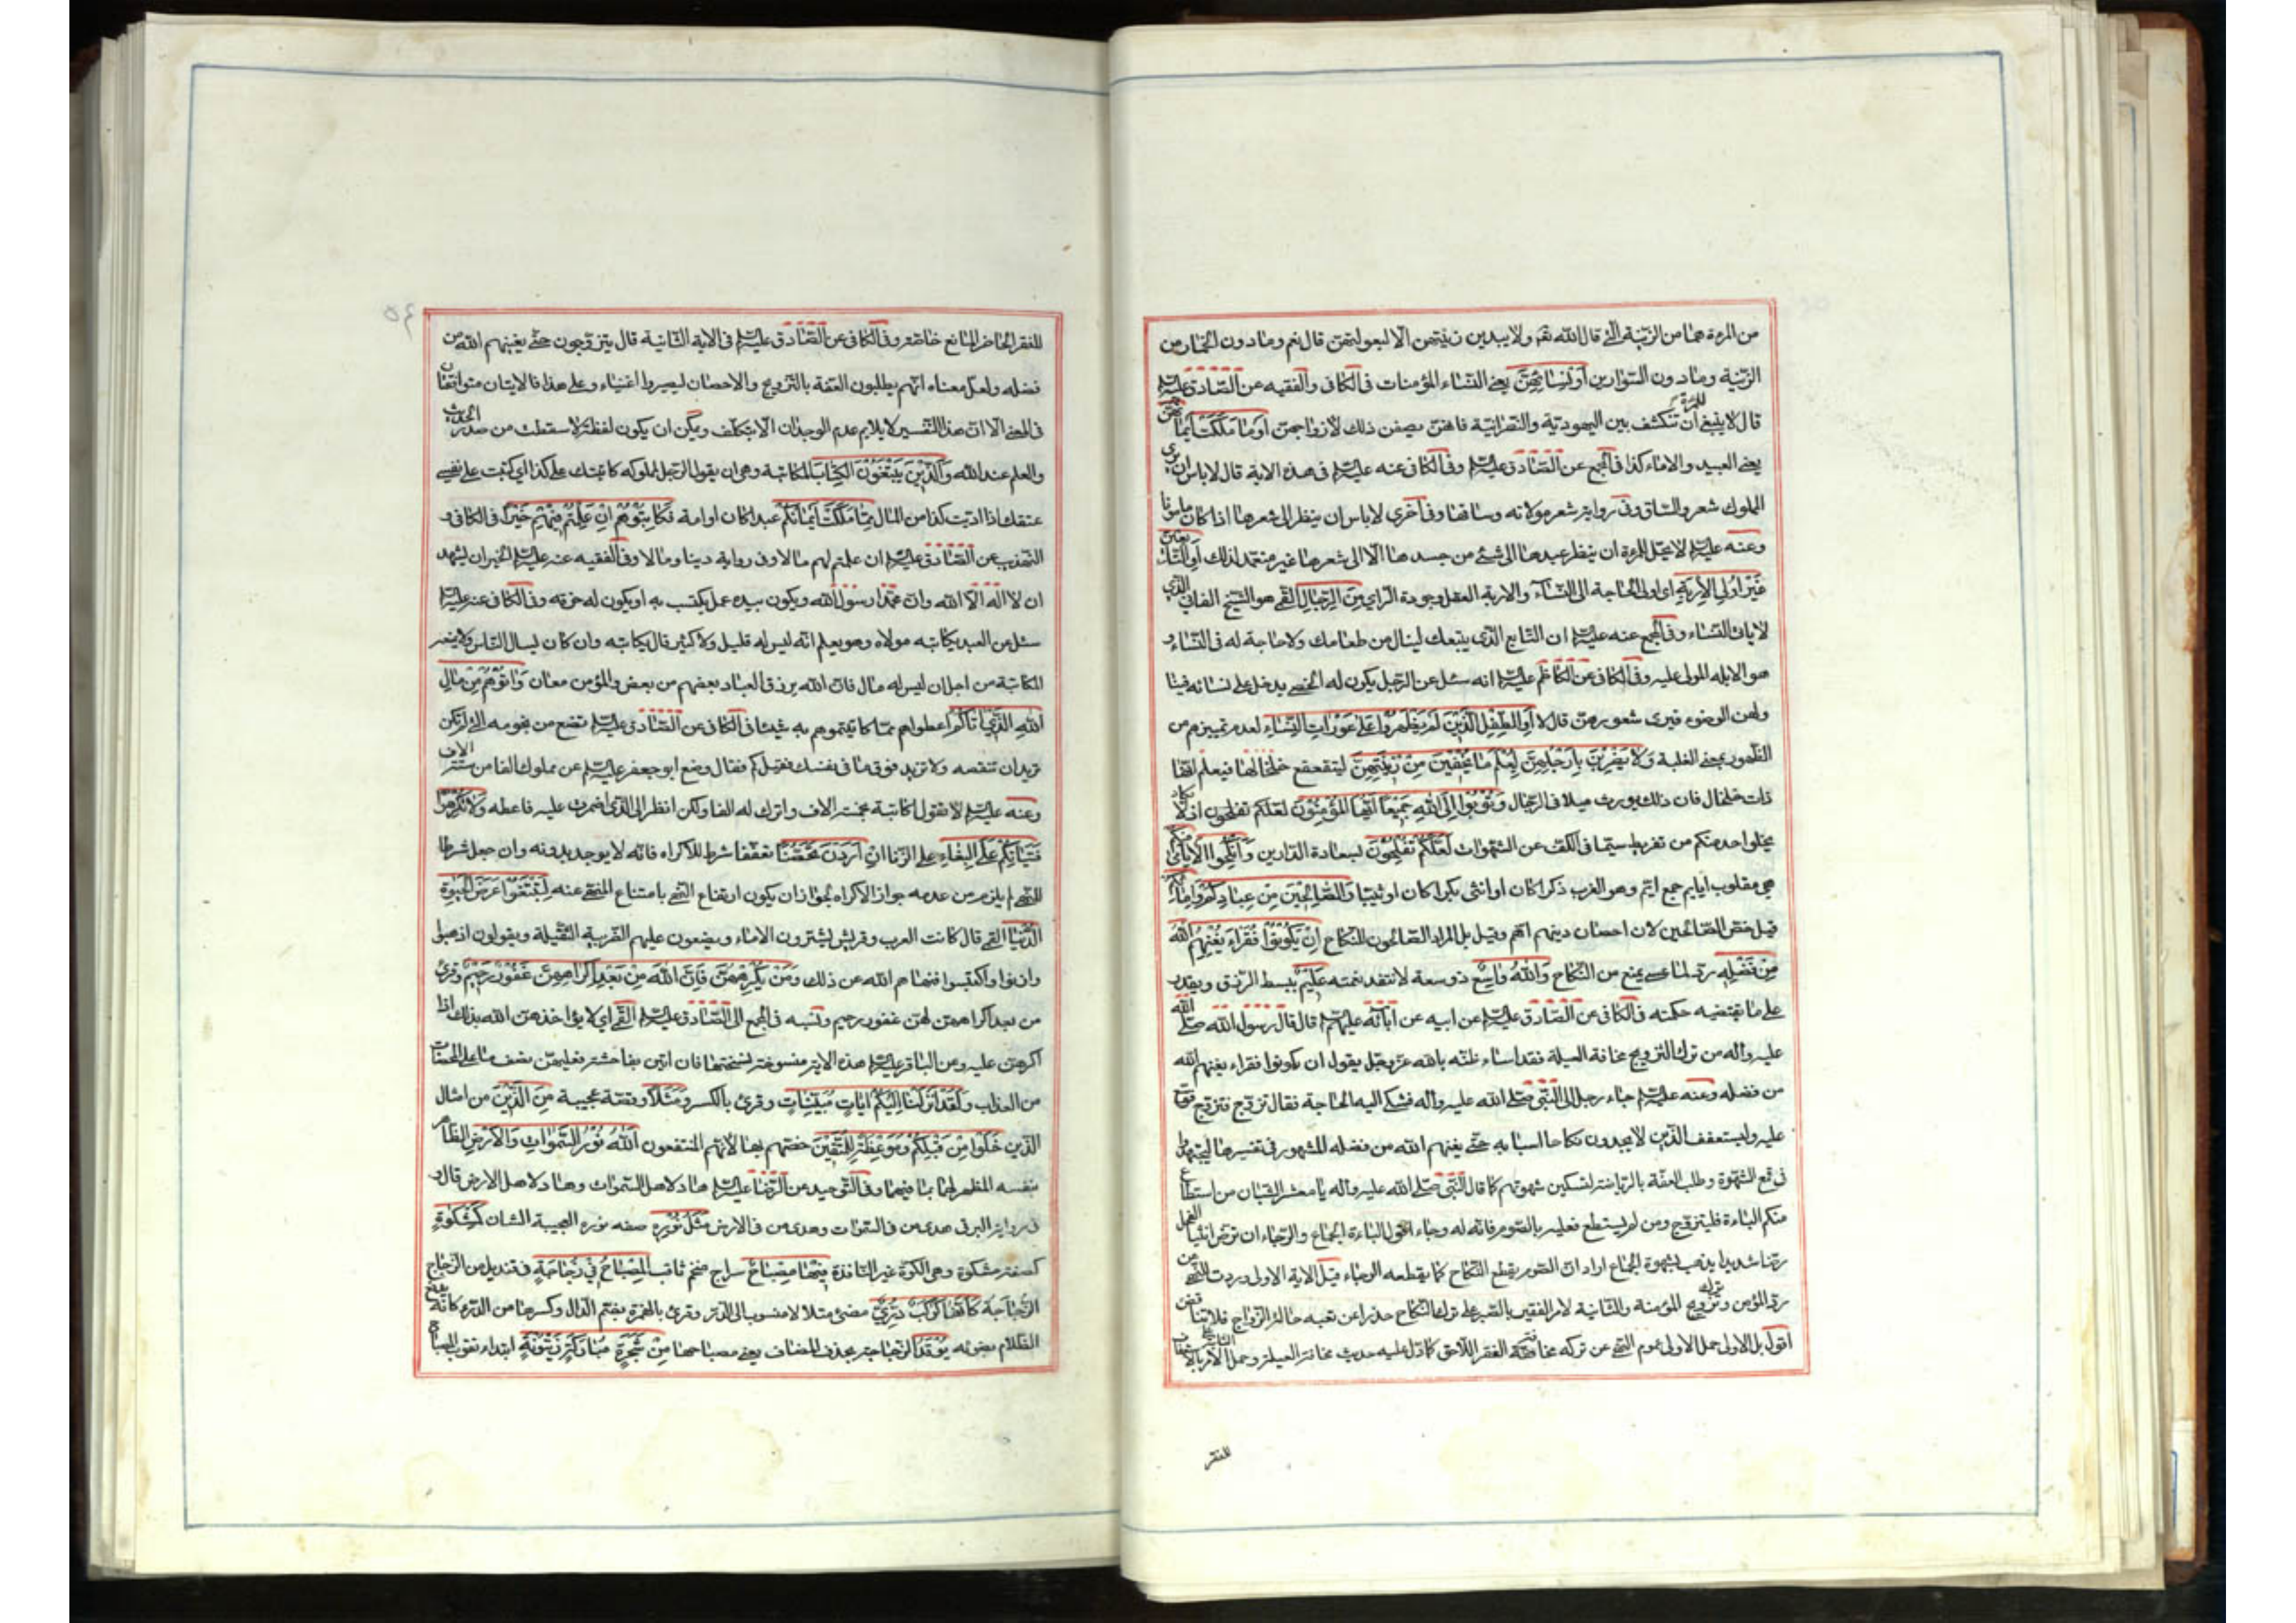 من المرءة هما من الزينة التى قال الله تعه ولا يبدين زينتهن الا لبعولتهن قال نعم وما دون الخمار من
الزينة وما دون السوارين أَوْ نِسَائِهِنَّ يعنى النساء المؤمنات فى الكافى والفقيه عن الصادق عليه السلم
قال لا ينبغى للمرءة ان تنكشف بين اليهودية والنصرانية فانهن يصفن ذلك لازواجهن أَوْ مَا مَلَكَتْ أَيْمَانُهُنَّ
يعنى العبيد والاماء كذا فى المجمع عن الصادق عليه السلم وفى الكافى عنه عليه السلم فى هذه الاية قال لا باس ان يرى
المملوك شعر والساق وفى رواية شعر مولاته وساقها وفى اخرى لا باس ان ينظر الى شعرها اذا كان مامونا
وعنه عليه السلم لا يحل للمرءة ان ينظر عبدها الى شئ من جسدها الا الى شعرها غير متعمد لذلك أَوِ التَّابِعِينَ
غَيْرِ أُولِي الْأِرْبَةِ اى اولى الحاجة الى النساء والاربة العقل وجودة الراى مِنَ الرِّجَالِ القمى هو الشيخ الفانى الذى
لا يات النساء وفى المجمع عنه عليه السلم ان التابع الذى يتبعك لينال من طعامك ولا حاجة له فى النساء و
هو الابله المولى عليه وفى الكافى عن الكاظم عليه السلم انه سئل عن الرجل يكون له الخصى يدخل على نسائه فينا
ولهن الوضوء فيرى شعورهن قال لا أَوِ الطِّفْلِ الَّذِينَ لَمْ يَظْهَرُوا عَلَى عَوْرَاتِ النِّسَاءِ لعدم تمييزهم من
الظهور بمعنى الغلبة وَلَا يَضْرِبْنَ بِأَرْجُلِهِنَّ لِيُعْلَمَ مَا يُخْفِينَ مِنْ زِينَتِهِنَّ ليتقعقع خلخالها فيعلم انها
ذات خلخال فان ذلك يورث ميلا فى الرجال وَتُوبُوا إِلَى اللَّهِ جَمِيعًا أَيُّهَا الْمُؤْمِنُونَ لعلكم تفلحون اذ لا يكاد
يخلوا احد منكم من تفريط سيما فى الكف عن الشهوات لَعَلَّكُمْ تُفْلِحُونَ لسعادة الدارين وَأَنْكِحُوا الْأَيَامَى مِنْكُمْ
هى مقلوب ايايم جمع ايم وهو العزب ذكرا كان او انثى بكرا كان او ثيبا وَالصَّالِحِينَ مِنْ عِبَادِكُمْ وَإِمَائِكُمْ
قيل خص الصالحين لان احصان دينهم اهم وقيل بل المراد الصالحون للنكاح إِنْ يَكُونُوا فُقَرَاءَ يُغْنِهِمُ اللَّهُ
مِنْ فَضْلِهِ رد لما عسى يمنع من النكاح وَاللَّهُ وَاسِعٌ ذو سعة لا تنفد نعمته عَلِيمٌ يبسط الرزق ويقدر
على ما يقتضيه حكمته فى الكافى عن الصادق عليه السلم عن ابيه عن ابائه عليهم السلم قال قال رسول الله صلى الله
عليه واله من ترك التزويج مخافة العيلة فقد اساء ظنه بالله عز وجل يقول ان يكونوا فقراء يغنهم الله
من فضله وعنه عليه السلم جاء رجل الى النبى صلى الله عليه واله فشكى اليه الحاجة فقال تزوج فتزوج فوسع
عليه وليستعفف الذين لا يجدون نكاحا اسبابه حتى يغنيهم الله من فضله المشهور فى تفسيرها ليجتهدوا
فى قمع الشهوة وطلب العفة بالرياضة لتسكين شهوتهم كما قال النبى صلى الله عليه واله يا معشر الشبان من استطاع
منكم الباءة فليتزوج ومن لم يستطع فعليه بالصوم فانه له وجاء اقول الباءة الجماع والوجاء ان ترض انثيا الفحل
رضا شديدا يذهب بشهوة الجماع اراد ان الصوم يقطع النكاح كما يقطعه الوجاء قيل الاية الاولى وردت للنهى عن
رد المؤمن وترك تزويج المؤمنة والثانية لامر الفقير بالصبر على ترك النكاح حذرا عن تعبه حالة الزواج فلا تناقض
اقول بل الاولى حمل الاولى على عموم النهى عن تركه مخافة الفقر اللاحق كما دل عليه حديث مخافة العيلة وحمل الامر بالاستعفاف
للفقر
للفقر الحاضر المانع خاصة وفى الكافى عن الصادق عليه السلم فى الاية الثانية قال يتزوجون حتى يغنيهم الله من
فضله ولعل معناه انهم يطلبون العفة بالتزويج والاحصان ليصيروا اغنياء وعلى هذا فالايتان متوافقتان
فى المعنى الا ان هذا التفسير لا يلايم عدم الوجدان الا بتكلف ويمكن ان يكون لفظة لا سقطت من صدر الحديث
والعلم عند الله وَالَّذِينَ يَبْتَغُونَ الْكِتَابَ المكاتبة وهى ان يقول الرجل لمملوكه كاتبتك على كذا اى كتبت على نفسى
عتقك اذا اديت كذا من المال مِمَّا مَلَكَتْ أَيْمَانُكُمْ عبدا كان او امة فَكَاتِبُوهُمْ إِنْ عَلِمْتُمْ فِيهِمْ خَيْرًا فى الكافى و
التهذيب عن الصادق عليه السلم ان علمتم لهم مالا وفى رواية دينا ومالا وفى الفقيه عنه عليه السلم الخير ان يشهد
ان لا اله الا الله وان محمدا رسول الله ويكون بيده عمل يكتسب به او يكون له حرفة وفى الكافى عنه عليه السلم
سئل عن العبد يكاتبه مولاه وهو يعلم انه ليس له قليل ولا كثير قال يكاتبه وان كان يسال الناس ولا يمنعه
المكاتبة من اجل ان ليس له مال فان الله يرزق العباد بعضهم من بعض والمؤمن معان وَآتُوهُمْ مِنْ مَالِ
اللَّهِ الَّذِي آتَاكُمْ اعطوهم مما كاتبتموهم به شيئا فى الكافى عن الصادق عليه السلم تضع من نجومه التى لم تكن
تريد ان تنقصه ولا تزيد فوق ما فى نفسك فقيل كم فقال وضع ابو جعفر عليه السلم عن مملوك الفا من ستة الاف
وعنه عليه السلم لا تقول اكاتبه بخمسة الاف واترك له الفا ولكن انظر الى الذى اضمرت عليه فاعطه وَلَا تُكْرِهُوا
فَتَيَاتِكُمْ عَلَى الْبِغَاءِ على الزنا إِنْ أَرَدْنَ تَحَصُّنًا تعففا شرط للاكراه فانه لا يوجد بدونه وان جعل شرطا
للنهى لم يلزم من عدمه جواز الاكراه لجواز ان يكون ارتفاع النهى بامتناع المنهى عنه لِتَبْتَغُوا عَرَضَ الْحَيَوةِ
الدُّنْيَا القمى قال كانت العرب وقريش يشترون الاماء ويضعون عليهم الضريبة الثقيلة ويقولون اذهبوا
وازنوا واكتسبوا فنهاهم الله عن ذلك وَمَنْ يُكْرِهْهُنَّ فَإِنَّ اللَّهَ مِنْ بَعْدِ إِكْرَاهِهِنَّ غَفُورٌ رَحِيمٌ وقرئ
من بعد اكراههن لهن غفور رحيم ونسبه فى المجمع الى الصادق عليه السلم القمى اى لا يؤاخذهن الله بذلك اذا
اكرهن عليه وعن الباقر عليه السلم هذه الاية منسوخة نسختها فان اتين بفاحشة فعليهن نصف ما على المحصنات
من العذاب وَلَقَدْ أَنْزَلْنَا إِلَيْكُمْ آيَاتٍ مُبَيِّنَاتٍ وقرئ بالكسر وَمَثَلًا وقصة عجيبة مِنَ الَّذِينَ من امثال
الذين خَلَوْا مِنْ قَبْلِكُمْ وَمَوْعِظَةً لِلْمُتَّقِينَ خصهم بها لانهم المنتفعون اللَّهُ نُورُ السَّمَوَاتِ وَالْأَرْضِ الظاهر
بنفسه المظهر لهما بما فيهما وفى التوحيد عن الرضا عليه السلم هاد لاهل السموات وهاد لاهل الارض قال و
فى رواية البرقى هدى من فى السموات وهدى من فى الارض مَثَلُ نُورِهِ صفه نوره العجيبة الشان كَمِشْكَوةٍ
كصفة مشكوة وهى الكوة غير النافذة فِيهَا مِصْبَاحٌ سراج ضخم ثاقب الْمِصْبَاحُ فِي زُجَاجَةٍ فى قنديل من الزجاج
الزُّجَاجَةُ كَأَنَّهَا كَوْكَبٌ دُرِّيٌّ مضئ متلالا منسوب الى الدر وقرئ بالهمزة بضم الدال وكسرها من الدرء كانه يدفع
الظلام بضوئه يُوقَدُ الزجاجة بحذف المضاف يعنى مصباحها مِنْ شَجَرَةٍ مُبَارَكَةٍ زَيْتُونَةٍ ابتداء ثقوب المصباح